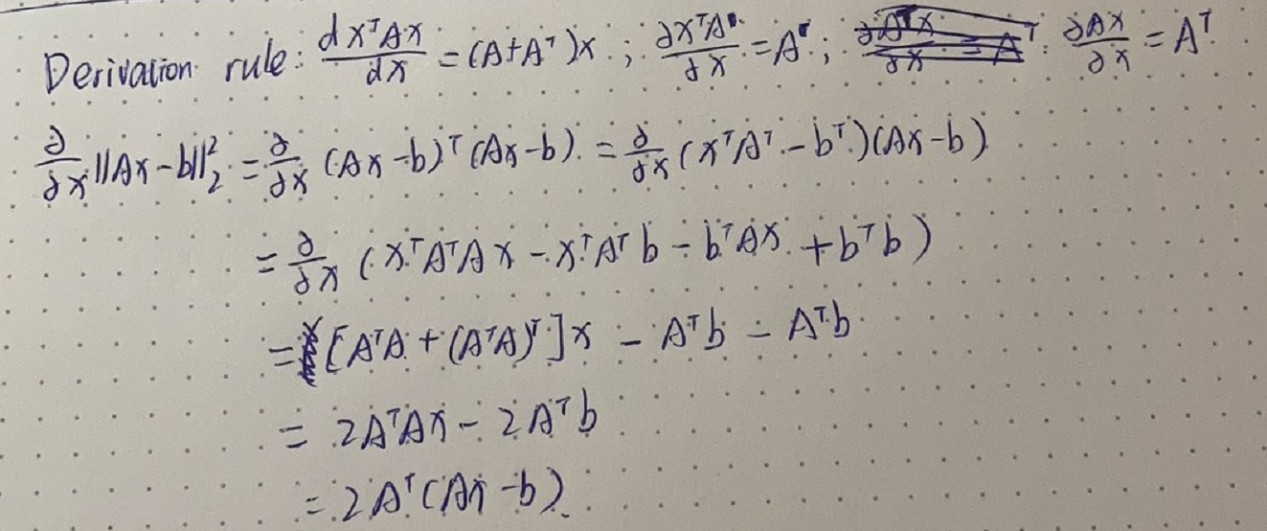 Derivation rule: dxᵀAx/dx = (A+Aᵀ)x ; ∂xᵀA/∂x = A ; ∂Ax/∂x = Aᵀ
∂/∂x ||Ax-b||₂² = ∂/∂x (Ax-b)ᵀ(Ax-b) = ∂/∂x (xᵀAᵀ-bᵀ)(Ax-b)
= ∂/∂x (xᵀAᵀAx - xᵀAᵀb - bᵀAx + bᵀb)
= [AᵀA + (AᵀA)ᵀ]x - Aᵀb - Aᵀb
= 2AᵀAx - 2Aᵀb
= 2Aᵀ(Ax-b)